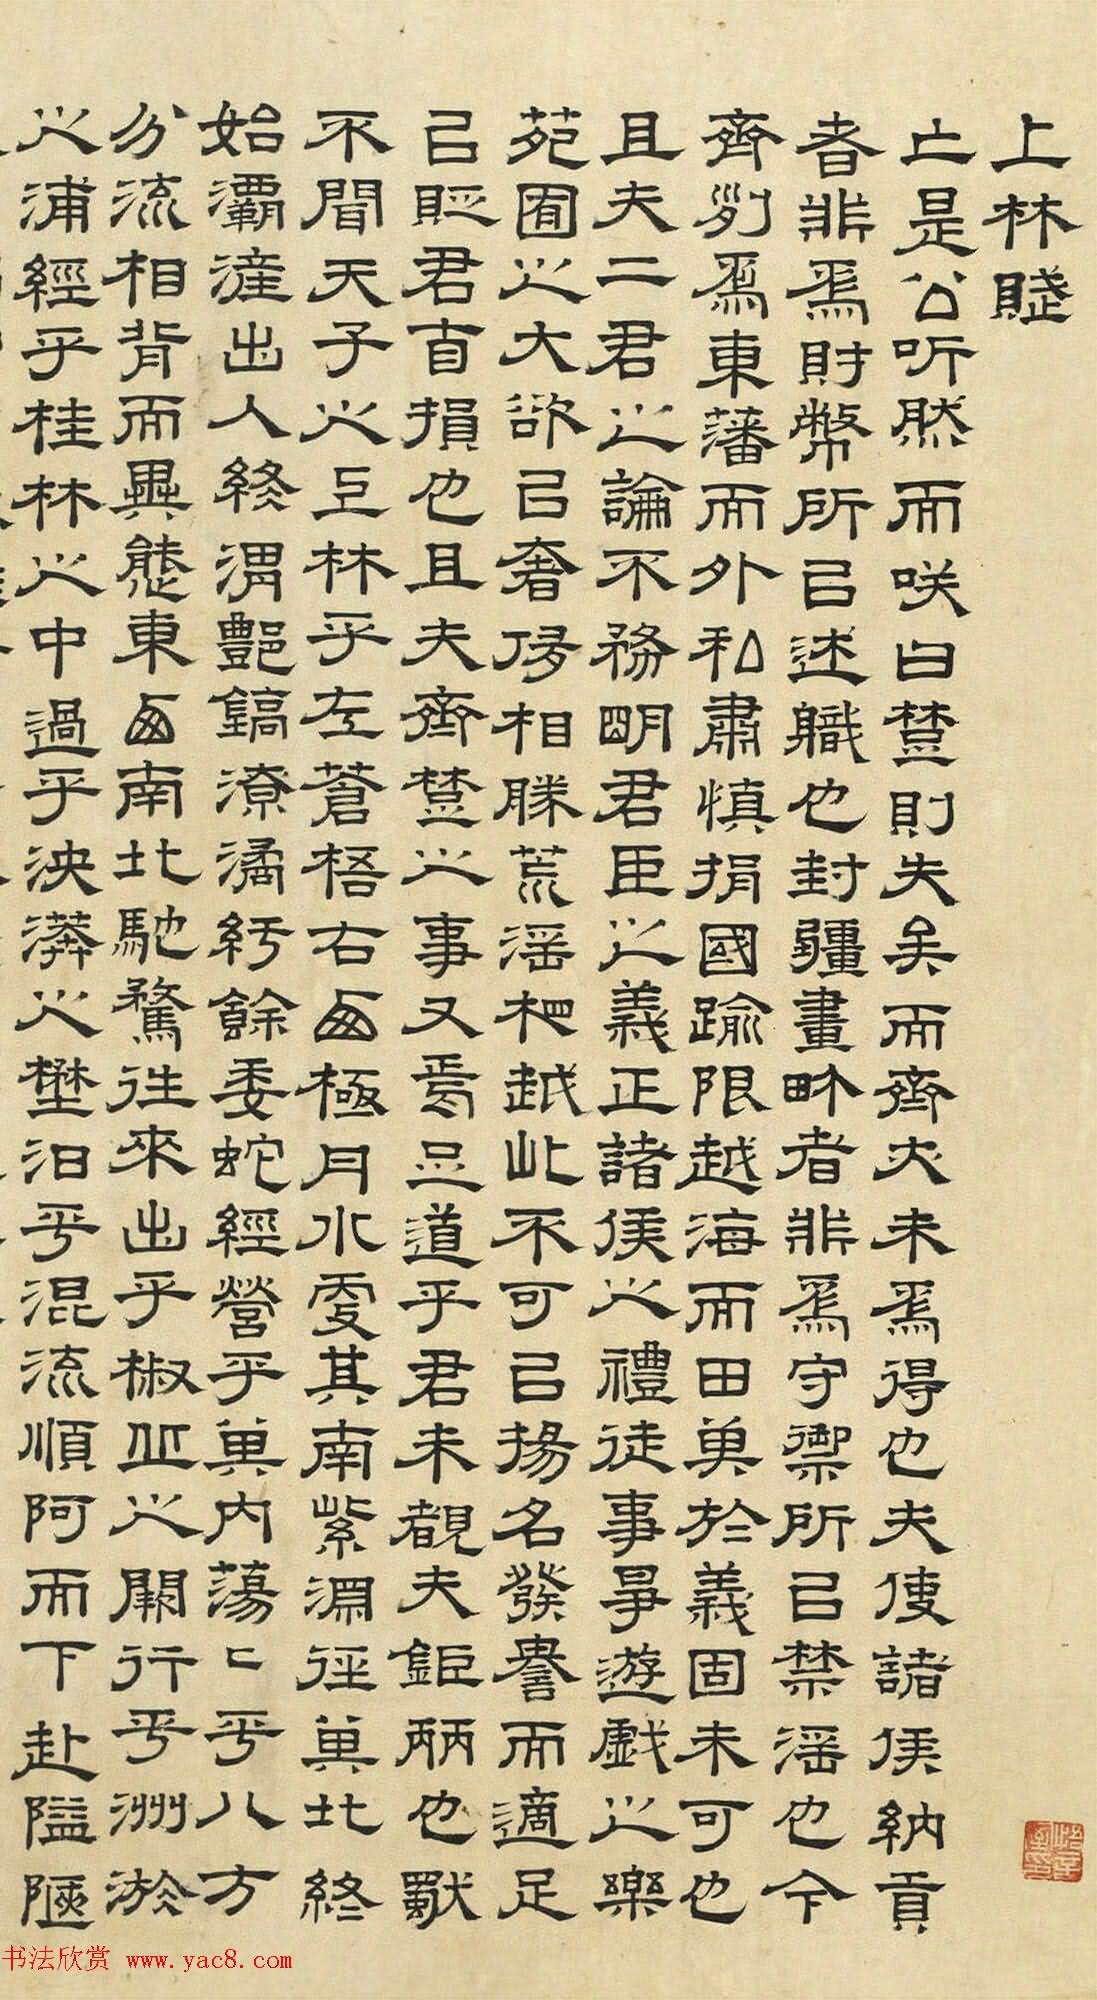 上林賦
亡是公听然而咲曰楚則失矣而齊亦未爲得也夫使諸侯納貢
者非爲財幣所以述職也封疆畫界者非爲守禦所以禁淫也今
齊列爲東藩而外私肅慎捐國踰限越海而田其於義固未可也
且夫二君之論不務明君臣之義正諸侯之禮徒事爭遊戲之樂
苑囿之大欲以奢侈相勝荒淫相越此不可以揚名發譽而適足
以貶君自損也且夫齊楚之事又焉足道乎君未覩夫鉅麗也獨
不聞天子之上林乎左蒼梧右西極丹水更其南紫淵徑其北終
始灞滻出入終渭酆鎬潦潏紆餘委蛇經營乎其內蕩〻乎八方
分流相背而異態東西南北馳騖往來出乎椒丘之闕行乎洲淤
之浦經乎桂林之中過乎泱漭之壄汨乎混流順阿而下赴隘陿
书法欣赏 www.yac8.com